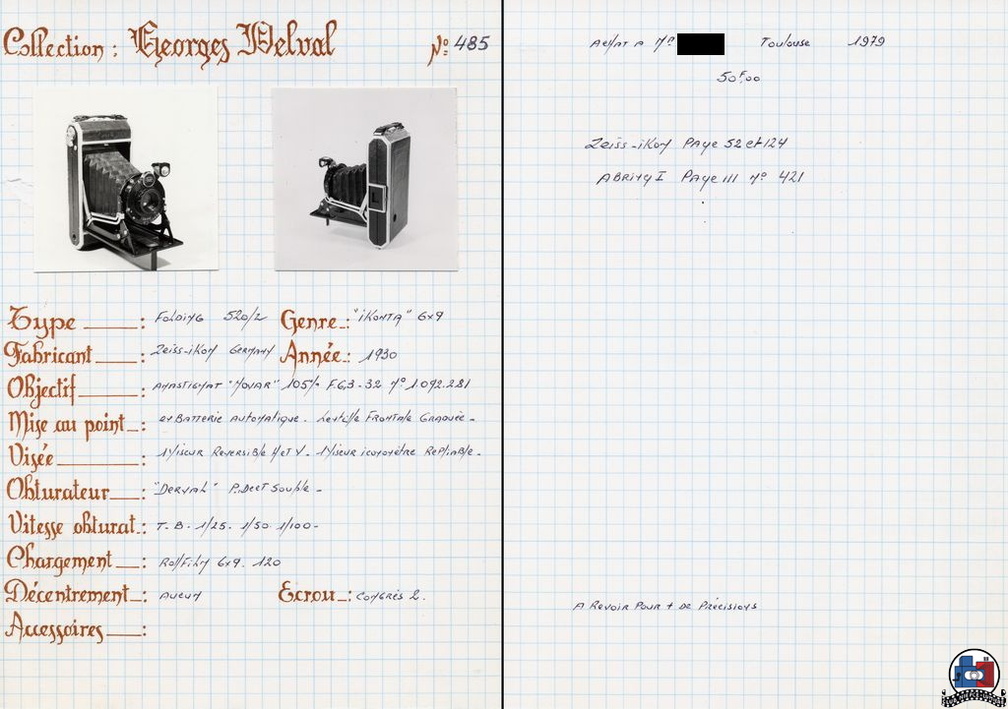 Collection : Georges Delval Nº 485
Type : Folding 520/2 Genre : "Ikonta" 6x9
Fabricant : Zeiss-Ikon Germany Année : 1930
Objectif : Anastigmat "Novar" 105% F.6,3-32 Nº 1.092.281
Mise au point : en Batterie Automatique. Lentille Frontale Graduée -
Visée : Viseur Reversible H et V. Viseur iconomètre Repliable -
Obturateur : "Derval" P. D et Souple -
Vitesse obturat : T. B. 1/25. 1/50 1/100 -
Chargement : Roll Film 6x9. 120
Décentrement : Aucun Ecrou : Congrès 2.
Accessoires :
Achat A Mr Toulouse 1979
50F00
Zeiss-ikon Page 52 et 124
Abring I Page 111 Nº 421
A Revoir Pour + de Précisions